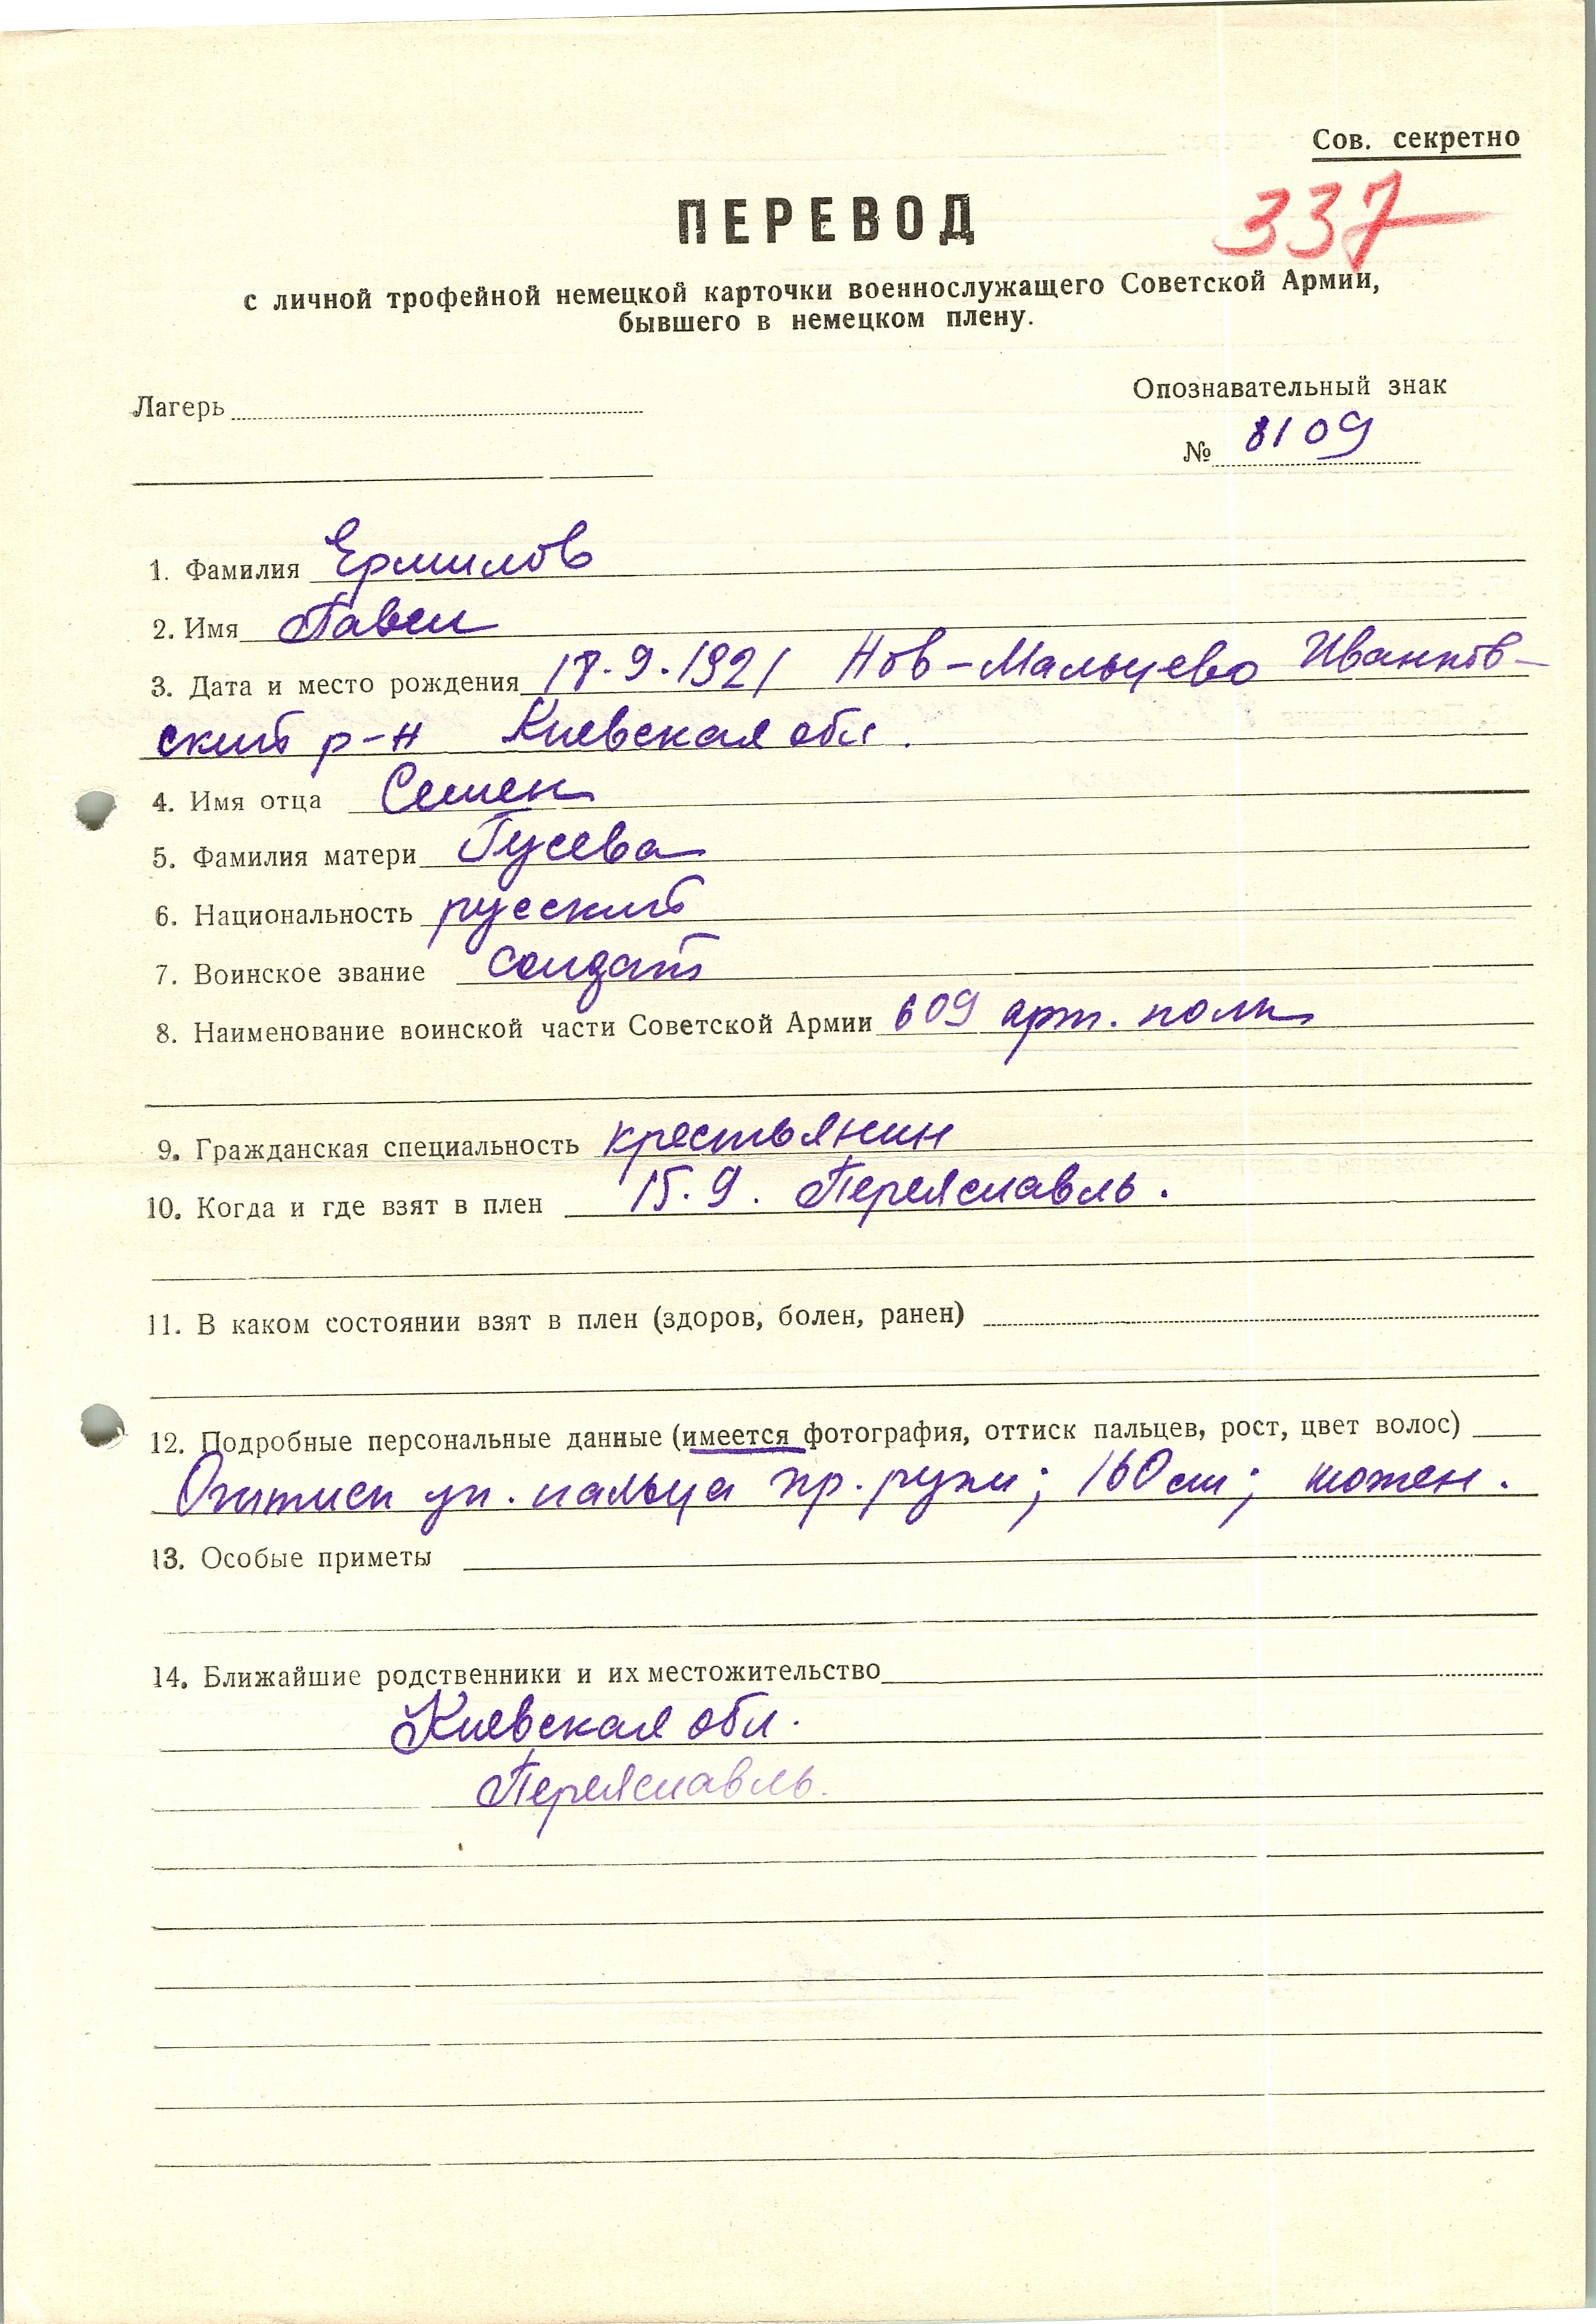 Сов. секретно
337
ПЕРЕВОД
с личной трофейной немецкой карточки военнослужащего Советской Армии,
бывшего в немецком плену.
Лагерь
Опознавательный знак
№ 8109
1. Фамилия Ермилов
2. Имя Павел
3. Дата и место рождения 18.9.1921 Нов-Мальцево Иванков-
ский р-н Киевская обл.
4. Имя отца Семен
5. Фамилия матери Гусева
6. Национальность русский
7. Воинское звание солдат
8. Наименование воинской части Советской Армии 609 арт. полк
9. Гражданская специальность крестьянин
10. Когда и где взят в плен 15.9. Переяславль.
11. В каком состоянии взят в плен (здоров, болен, ранен)
12. Подробные персональные данные (имеется фотография, оттиск пальцев, рост, цвет волос)
Оттиск ук. пальца пр. руки; 160 см;
13. Особые приметы
14. Ближайшие родственники и их местожительство
Киевская обл.
Переяславль.